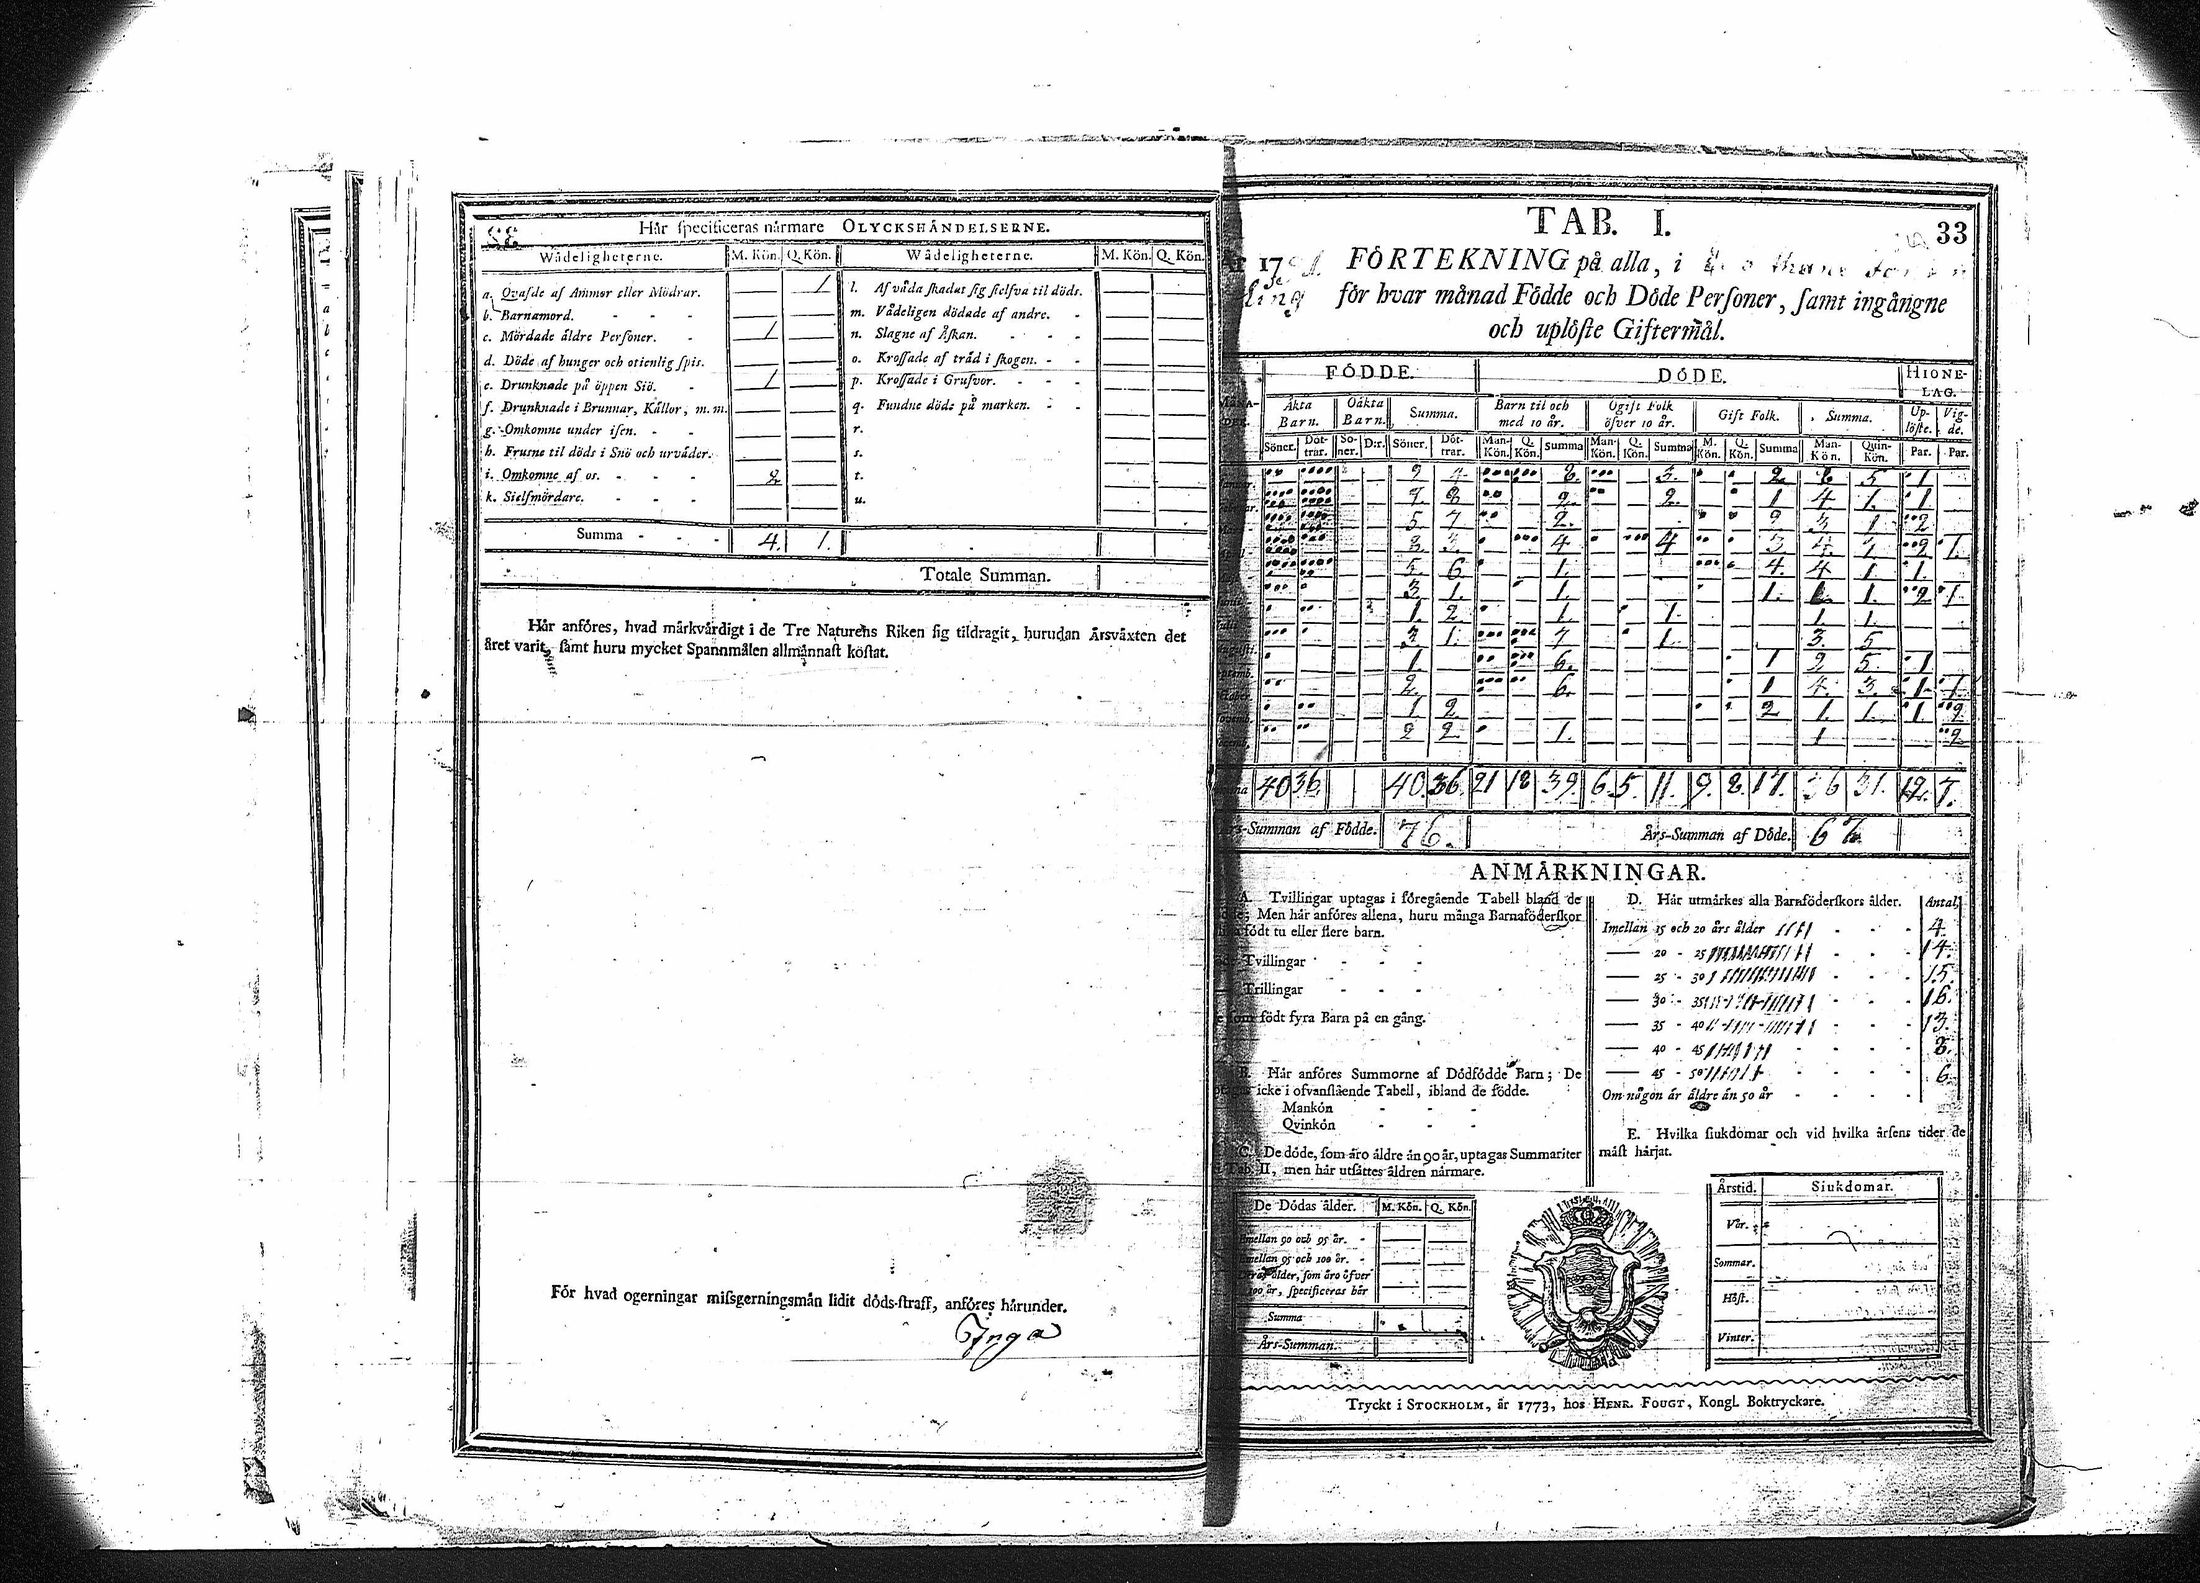 32
Hår specificeras nårmare OLYCKSHÅNDELSERNE.
Wådeligheterne. M. Kön. Q. Kön. Wådeligheterne. M. Kön. Q. Kön.
a. Qvafde af Ammor eller Mödrar. 1 l. Af våda skadat sig sielfva til döds.
b. Barnamord. - - - m. Vådeligen dödade af andre. -
c. Mördade äldre Personer. - 1 n. Slagne af Åskan. - - -
d. Döde af hunger och otienlig spis. o. Krossade af träd i skogen. - -
e. Drunknade på öppen Siö. - 1 p. Krossade i Grufvor. - - -
f. Drunknade i Brunnar, Källor, m.m. q. Fundne döde på marken. - -
g. Omkomne under isen. - - r.
h. Frusne til döds i Snö och urväder. s.
i. Omkomne af os. - - - 2 t.
k. Sielfmördare. - - - u.
Summa - - - 4. 1.
Totale Summan.
Hår anföres, hvad mårkvårdigt i de Tre Naturens Riken sig tildragit, hurudan Årsväxten det
året varit, samt huru mycket Spannmålen allmånnast kostat.
För hvad ogerningar missgerningsmån lidit döds-straff, anföres hårunder.
Inga
TAB. I.
33
År 17 FÖRTEKNING på alla, i
för hvar månad Födde och Döde Personer, samt ingångne
och uplöste Giftermål.
FÖDDE. DÖDE. HIONE-
LAG.
Åkta Barn. Oåkta Barn. Summa. Barn til och med 10 år. Ogift Folk öfver 10 år. Gift Folk. Summa. Up-löste. Vig-de.
Söner. Döt-trar. Sö-ner. D:r. Söner. Döt-trar. Man-Kön. Q. Kön. Summa Man-Kön. Q. Kön. Summa M. Kön. Q. Kön. Summa Man-Kön. Quin-Kön. Par. Par.
2 4 8. 3. 2 8 5 1
9. 8. 2. 2. 1 4 1. 1
5 7 2. 2 3 1 2
4 4 3 2 1.
5 6 1. 4. 4 1 1.
3 1. 1. 1. 1. 2 1
1. 2 1. 1. 1. 1.
3 1. 7 1. 3. 5
1. 6. 1 2 5. 1.
2. 6. 1 4. 3. 1. 1.
1 2. 2 1. 1. 1 2
2 2 1. 1 2
40 36. 40. 36. 21 18 39. 6. 5. 11. 9. 8. 17. 36 31. 12. 7.
Års-Summan af Födde. 76. Års-Summan af Döde. 67.
ANMÅRKNINGAR.
A. Tvillingar uptagas i föregående Tabell bland de
födde; Men hår anföres allena, huru många Barnaföderskor
födt tu eller flere barn.
Tvillingar - - -
Trillingar - - -
födt fyra Barn på en gång.
B. Hår anföres Summorne af Dödfödde Barn; De
icke i ofvanstående Tabell, ibland de födde.
Mankön - - -
Qvinkön - - -
C. De döde, som äro äldre än 90 år, uptagas Summariter
i Tab. II, men hår utsättes åldren nårmare.
De Dödas ålder. M. Kön. Q. Kön.
Imellan 90 och 95 år. -
Imellan 95 och 100 år. -
ålder, som äro öfver
100 år, specificeras här
Summa
Års-Summan.
D. Hår utmårkes alla Barnföderskors ålder. Antal.
Imellan 15 och 20 års ålder - - - 4.
— 20 - 25 - - - 14.
— 25 - 30 - - - 15.
— 30 - 35 - - - 16.
— 35 - 40 - - - 13.
— 40 - 45 - - - 8.
— 45 - 50 - - - 6.
Om någon är äldre än 50 år - - - -
E. Hvilka siukdomar och vid hvilka årsens tider de
måst hårjat.
Årstid. Siukdomar.
Vår.
Sommar.
Höst.
Vinter.
Tryckt i STOCKHOLM, år 1773, hos HENR. FOUGT, Kongl. Boktryckare.